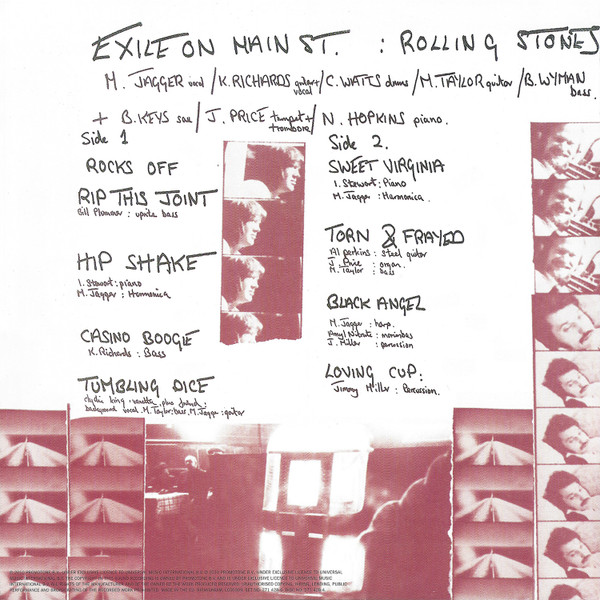 EXILE ON MAIN ST. : ROLLING STONES
M. JAGGER vocal / K. RICHARDS guitar + vocal / C. WATTS drums / M. TAYLOR guitar / B. WYMAN bass.
+ B. KEYS sax / J. PRICE trumpet + trombone / N. HOPKINS piano.
Side 1
ROCKS OFF
RIP THIS JOINT
Bill Plummer : uprite bass
HIP SHAKE
I. Stewart : piano
M. Jagger : Harmonica
CASINO BOOGIE
K. Richards : Bass
TUMBLING DICE
clydie king . vanetta . plus friend :
background vocal . M. Taylor : bass . M. Jagger : guitar
Side 2.
SWEET VIRGINIA
I. Stewart : Piano
M. Jagger : Harmonica .
TORN & FRAYED
Al perkins : steel guitar
J. Price : organ .
M. Taylor : bass
BLACK ANGEL
M. Jagger : harp .
Amyl Nitrate : marimbas
J. Miller : percussion
LOVING CUP :
Jimmy Miller : Percussion .